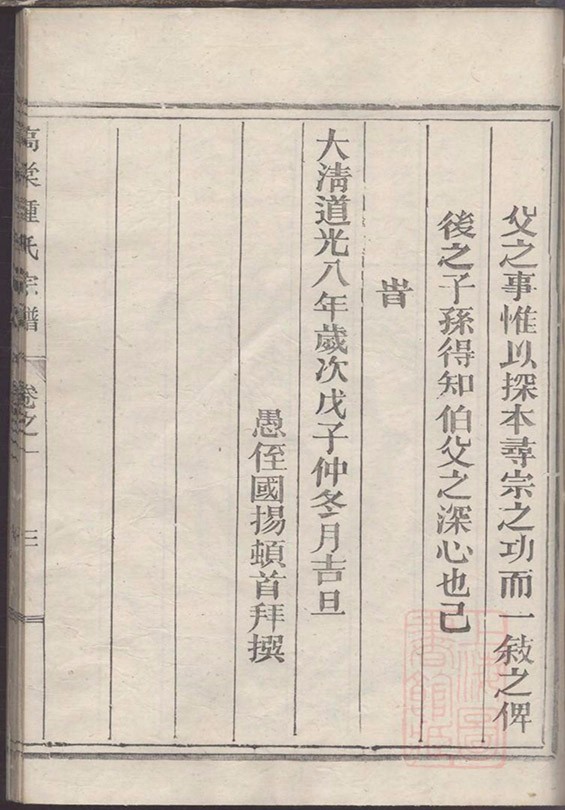 父之事惟以探本尋宗之功而一敍之俾
後之子孫得知伯父之深心也已
旹
大淸道光八年歲次戊子仲冬月吉旦
愚侄國揚頓首拜撰
高棠鍾氏宗譜 卷之一 三